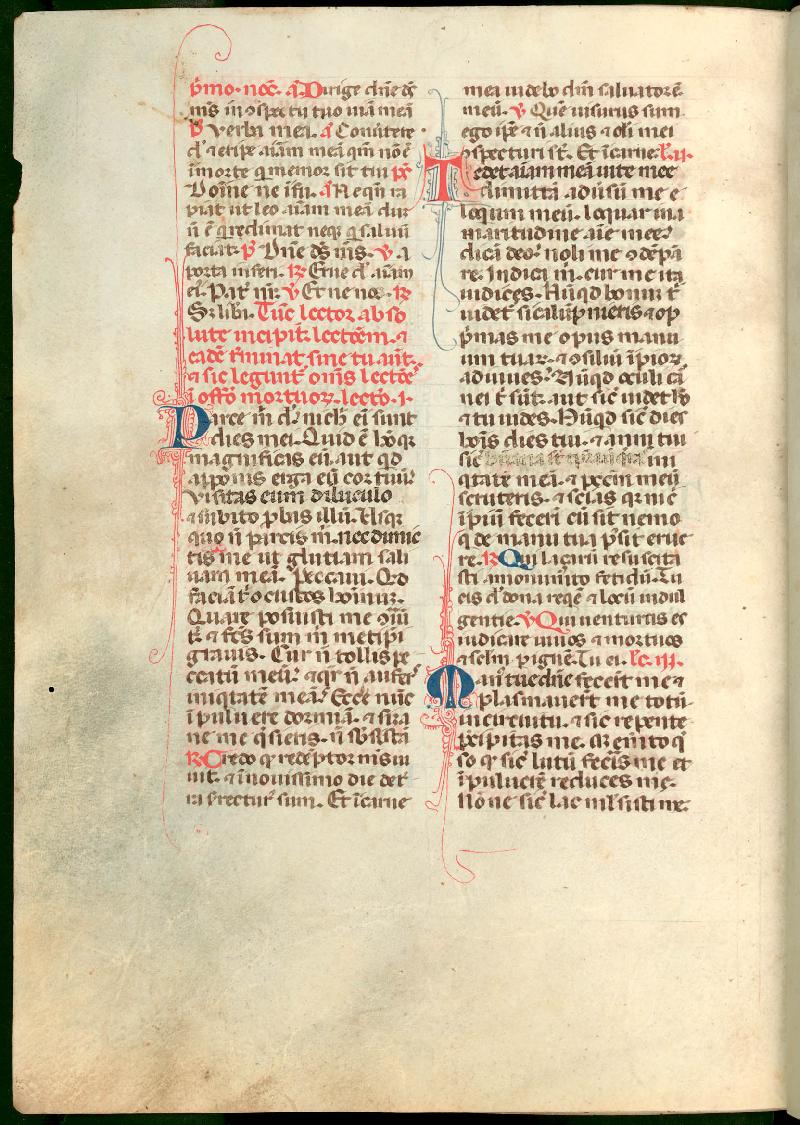 p̄mo. noc̄. a. Dirige dn̄e ds̄
ms̄ in ꝯspectu tuo uiā meā
p̄ verba mea. a Conuertere
d̄ et eripe aīam meā qm̄ nō ē
ī morte q memor sit tui ps̄
Domine ne ī fu. a Ne qn̄ ra
piat ut leo aīam meā dum
n̄ ē q redimat neq q saluū
faciat. p̄ Dn̄e ds̄ ms̄. v. a
porta inferi. R Erue d̄ aīam
ei. Pat nr̄. v Et ne nos. R
S; libā. Tūc lector abso
lute incipit lectōem. ⁊
eadē t̄minat sine tu aut̄.
⁊ sic legunt̄ om̄s lectōe
ī offō mortuoꝝ. lectō. i.
Parce m̄ d̄. nichˡ ei sunt
dies mei. Quid ē hō qꝛ
magnificas eū. aut qd
apponis erga eū cor tuū.
Visitas eum diluculo
⁊ subito ꝓbas illū. Usq
quo n̄ parcis m̄. nec dimic
tis me ut glutiam sali
uam meā. Peccaui. Qd
faciā t̄ o custos hominū.
Quare posuisti me ꝯt̄riū
t̄. ⁊ fcs̄ sum m̄ metipi
grauis. Cur n̄ tollis pec
catū meū. ⁊ qr̄ n̄ aufer
iniqtatē meā. Ecce nūc
ī puluere dormiā. ⁊ si ma
ne me q̄sieris. n̄ sbsistā
R Credo qꝛ redēptor m̄s ui
uit. ⁊ ī nouissimo die de t̄
ra surrectur̄ sum. Et ī carne
mea uidebo dm̄ saluatorē
meū. v Quē uisurus sum
ego ip̄e ⁊ n̄ alius ⁊ oli mei
ꝯspecturi st̄. Et ī carne. lc̄. ii.
Tedet aīam meā uite mee
dimittā aduersū me e
loquium meū. loquar in a
maritudine aīe mee.
dicā deo. noli me ꝯdēpna
re. Indica m̄. cur me ita
iudices. Nūqd bonum t̄
uidet si caliūpnieris ⁊ op
p̄mas me opus manu
um tuaꝝ. ⁊ ꝯsiliū īpioꝝ
adiuues. Nūqd oculi car
nei t̄ sūt. aut sic uidet hō
⁊ tu uides. Nūqd sic dies
hōis dies tui. ⁊ anni tui
sic humana sūt ut queras ini
qtatē meā. ⁊ pccm̄ meū
scruteris. ⁊ scias qꝛ nic̄
īpiū fecerī cū sit nemo
q de manu tua p̄sit erue
re. R Qui laçarū resuscita
sti a monum̄to fetidū. Tu
eis d̄ dona reqē ⁊ locū indul
gentie. v Qui uenturus es
iudicare uiuos ⁊ mortuos
⁊ sclm̄ p ignē. Tu ei. lc̄. iii.
Man̄ tue dn̄e fecert̄ me ⁊
plasmauert̄ me totū
in circuitu. ⁊ sic repente
p̄cipitas me. Memēto q
so qꝛ sic lutū feceris me et
ī puluerē reduces me.
Nōne sic lac mlsisti me.